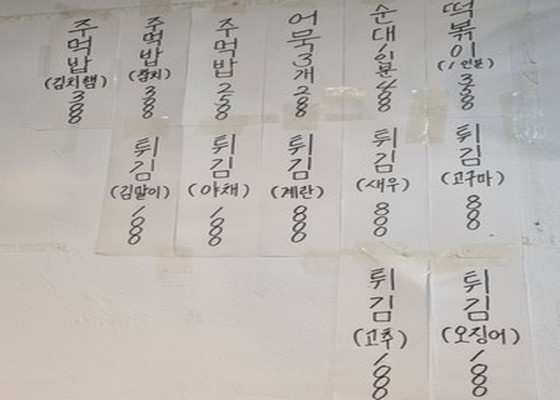 떡볶이
(1인분)
3500
순대1인분
4000
어묵3개
2000
주먹밥
2500
주먹밥
(참치)
3000
주먹밥
(김치햄)
3000
튀김
(고구마)
800
튀김
(새우)
800
튀김
(계란)
800
튀김
(야채)
1000
튀김
(김말이)
1000
튀김
(오징어)
1000
튀김
(고추)
1000